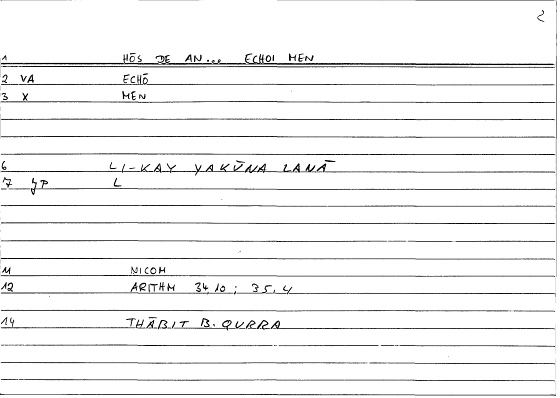 2
1 HŌS DE AN... ECHOI MEN
2 VA ECHŌ
3 X MEN
6 LI-KAY YAKŪNA LANĀ
7 JP L
11 NICOM
12 ARITHM 34,10 ; 35,4
14 THĀBIT B. QURRA